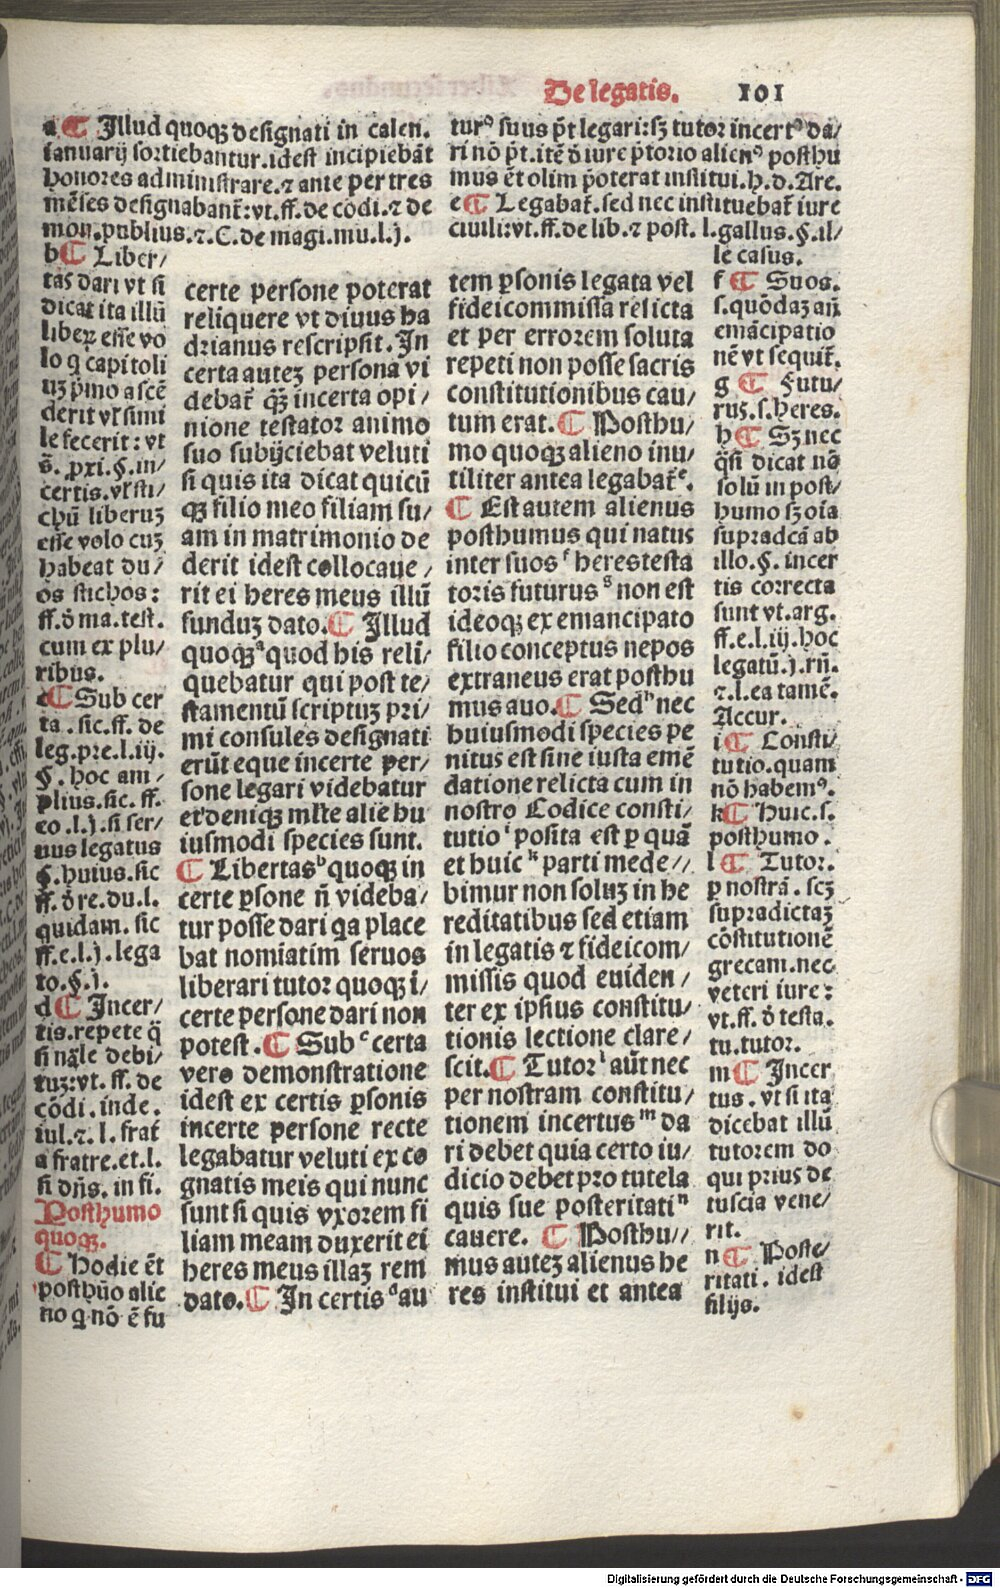 De legatis. 101
a ¶ Illud quoqꝫ designati in calen.
ianuarij sortiebantur.idest incipiebãt
honores administrare.⁊ ante per tres
mẽses designabant̃:vt.ff.de cõdi.⁊ de
mon.publius.⁊.C.de magi.mu.l.j.
b ¶ Liber/
tas dari vt si
dicat ita illũ
liberꝫ esse vo
lo q capitoli
uꝫ p̃mo ascẽ
derit vľsimi
le fecerit: vt
s̃. pxi.§.in/
certis.vľsti/
chũ liberuꝫ
esse volo cuꝫ
habeat du/
os stichos:
ff.õ ma.test.
cum ex plu/
ribus.
c ¶ Sub cer
ta. sic.ff. de
leg.pre.l.iij.
§. hoc am/
plius.sic.ff.
eo.l.j.si ser/
uus legatus
§.huius.sic
ff.õ re.du.l.
quidam. sic
ff.e.l.j.lega
to.§.j.
d ¶ Incer/
tis.repete q̃
si nãle debi/
tuꝫ:vt. ff. de
cõdi. inde.
iul.⁊.l.frat̃
a fratre.et.l.
si dñs. in fi.
Posthumo
quoqꝫ.
¶ Hodie ẽt
posthũo alie
no q nõ ẽ fu
certe persone poterat
reliquere vt diuus ha
drianus rescripsit. In
certa auteꝫ persona vi
debat̃ qꝫ̃ incerta opi/
nione testator animo
suo subijciebat veluti
si quis ita dicat quicũ
qꝫ filio meo filiam su/
am in matrimonio de
derit idest collocaue/
rit ei heres meus illũ
funduꝫ dato. ¶ Illud
quoqꝫᵃ quod his reli/
quebatur qui post te/
stamentũ scriptuꝫ pri/
mi consules designati
erũt eque incerte per/
sone legari videbatur
et deniqꝫ mľte alie hu
iusmodi species sunt.
¶ Libertasᵇ quoqꝫ in
certe ꝑsone ñ videba/
tur posse dari qa place
bat nomiatim seruos
liberari tutor quoqꝫ ĩ/
certe persone dari non
potest. ¶ Subᶜ certa
vero demonstratione
idest ex certis ꝑsonis
incerte persone recte
legabatur veluti ex co
gnatis meis qui nunc
sunt si quis vxorem fi
liam meam duxerit ei
heres meus illaꝫ rem
dato. ¶ In certisᵈ au
turꝰ suus p̃t legari:sꝫ tutor incertꝰ da/
ri nõ p̃t.itẽ õ iure p̃torio alienꝰ posthu
mus ẽt olim p̃oterat institui.h.d.Are.
e ¶ Legabat̃.sed nec instituebat̃ iure
ciuili:vt.ff.de lib.⁊ post. l.gallus.§.il/
le casus.
tem ꝑsonis legata vel
fideicommissa relicta
et per errorem soluta
repeti non posse sacris
constitutionibus cau/
tum erat. ¶ Posthu/
mo quoqꝫ alieno inu/
tiliter antea legabat̃ᵉ.
¶ Est autem alienus
posthumus qui natus
inter suosᶠ heres testa
toris futurusᵍ non est
ideoqꝫ ex emancipato
filio conceptus nepos
extraneus erat posthu
mus auo. ¶ Sedʰ nec
huiusmodi species pe
nitus est sine iusta emẽ
datione relicta cum in
nostro Codice consti/
tutioⁱ posita est ꝑ quã
et huicᵏ parti mede//
bimur non soluꝫ in he
reditatibus sed etiam
in legatis ⁊ fideicom/
missis quod euiden/
ter ex ipsius constitu/
tionis lectione clare/
scit. ¶ Tutorˡ aũt nec
per nostram constitu/
tionem incertusᵐ da
ri debet quia certo iu/
dicio debet pro tutela
quis sue posteritatiⁿ
cauere. ¶ Posthu//
mus auteꝫ alienus he
res institui et antea
f ¶ Suos.
s.quõdaꝫ añ
emãcipatio
nẽ vt sequit̃.
g ¶ Futu/
rus.s.heres.
h ¶ Sꝫ nec
q̃si dicat nõ
solũ in post/
humo sꝫ oĩa
supradcã ab
illo.§. incer
tis correcta
sunt vt.arg.
ff.e.l.iij.hoc
legatũ.j.rñ.
⁊.l.ea tamẽ.
Accur.
i ¶ Consti/
tutio.quam
nõ habemꝰ.
k ¶ Huic.s.
posthumo.
l ¶ Tutor.
ꝑ nostrã.scꝫ
supradictaꝫ
cõstitutionẽ
grecam.nec
veteri iure:
vt.ff. õ testa.
tu.tutor.
m ¶ Incer
tus. vt si ita
dicebat illũ
tutorem do
qui prius de
tuscia vene/
rit.
n ¶ Poste/
ritati. idest
filijs.
Digitalisierung gefördert durch die Deutsche Forschungsgemeinschaft - DFG